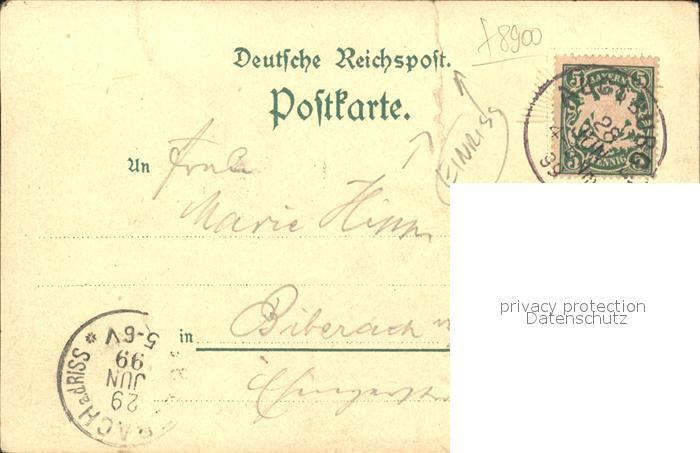 +8900
Deutsche Reichspost.
Postkarte.
EINRISS
5 BAYERN 5
5 PFENNIG
28
JUN
99
An Frau
Marie
in Biberach
BACH a.d.RISS *
29
JUN
99
5-6V
privacy protection
Datenschutz